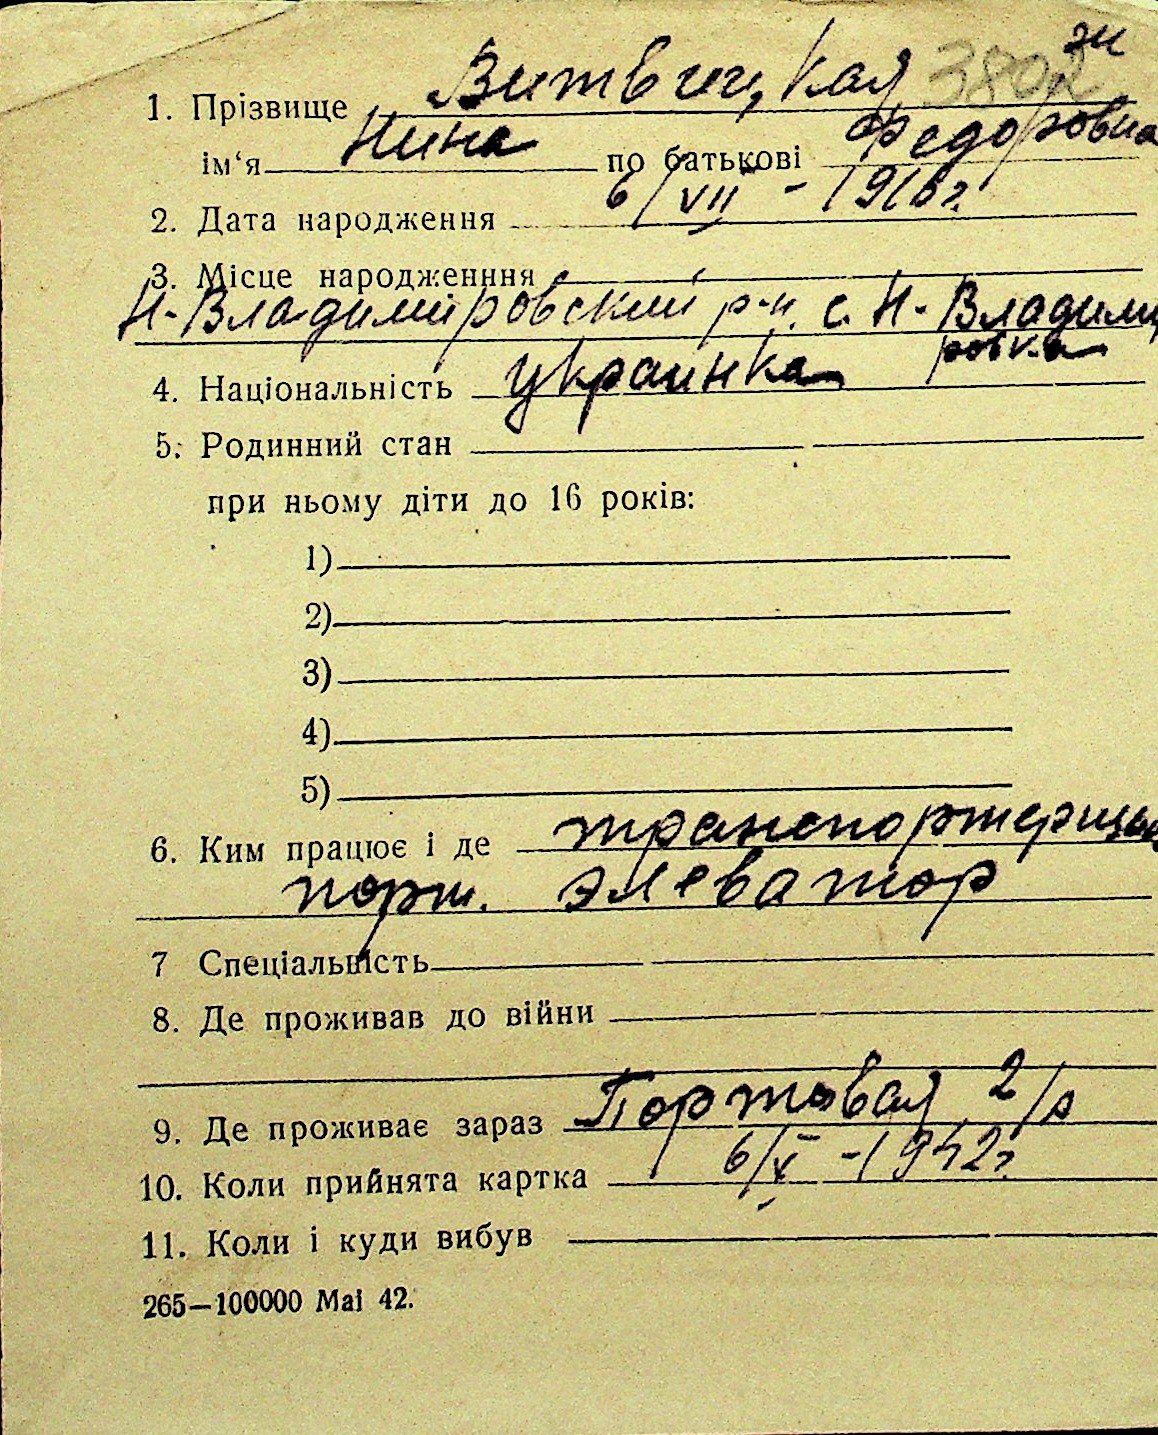 эи
1. Прізвище Витвицкая 3802
ім‘я Нина по батькові Федоровна
2. Дата народження 6/VII - 1918 г.
3. Місце народженння
Н-Владимировский р-н. с. Н-Владими
ровка
4. Національність украинка
5. Родинний стан
при ньому діти до 16 років:
1)
2)
3)
4)
5)
6. Ким працює і де транспортерщица
порт. элеватор
7 Спеціальність
8. Де проживав до війни
9. Де проживає зараз Портовая 2/а
10. Коли прийнята картка 6/X - 1942 г.
11. Коли і куди вибув
265—100000 Mai 42.